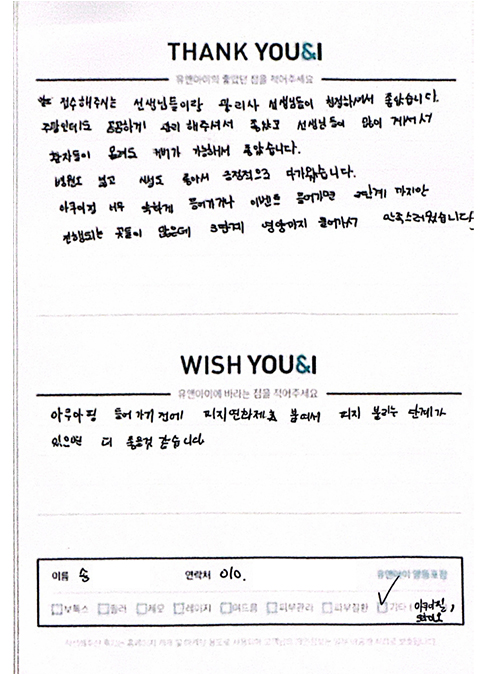 THANK YOU&I
유앤아이의 좋았던 점을 적어주세요
접수해주시는 선생님들이랑 관리사 선생님들이 친절하셔서 좋았습니다.
주말인데도 꼼꼼하게 관리 해주셔서 좋았고 선생님들이 많이 계셔서
환자들이 몰려도 커버가 가능해서 좋았습니다.
병원도 넓고 시설도 좋아서 긍정적으로 다가왔습니다.
아쿠아필 너무 약하게 들어가거나 이벤트로 들어가면 2단계 까지만
진행되는 곳들이 많은데 3단계 영양까지 들어가서 만족스러웠습니다
WISH YOU&I
유앤아이에 바라는 점을 적어주세요
아쿠아필 들어가기 전에 피지연화제를 붙여서 피지 불리는 단계가
있으면 더 좋을것 같습니다
이름 송 연락처 010. 유앤아이 영등포점
보톡스 필러 제모 레이저 여드름 피부관리 피부질환 기타 (아쿠아필,